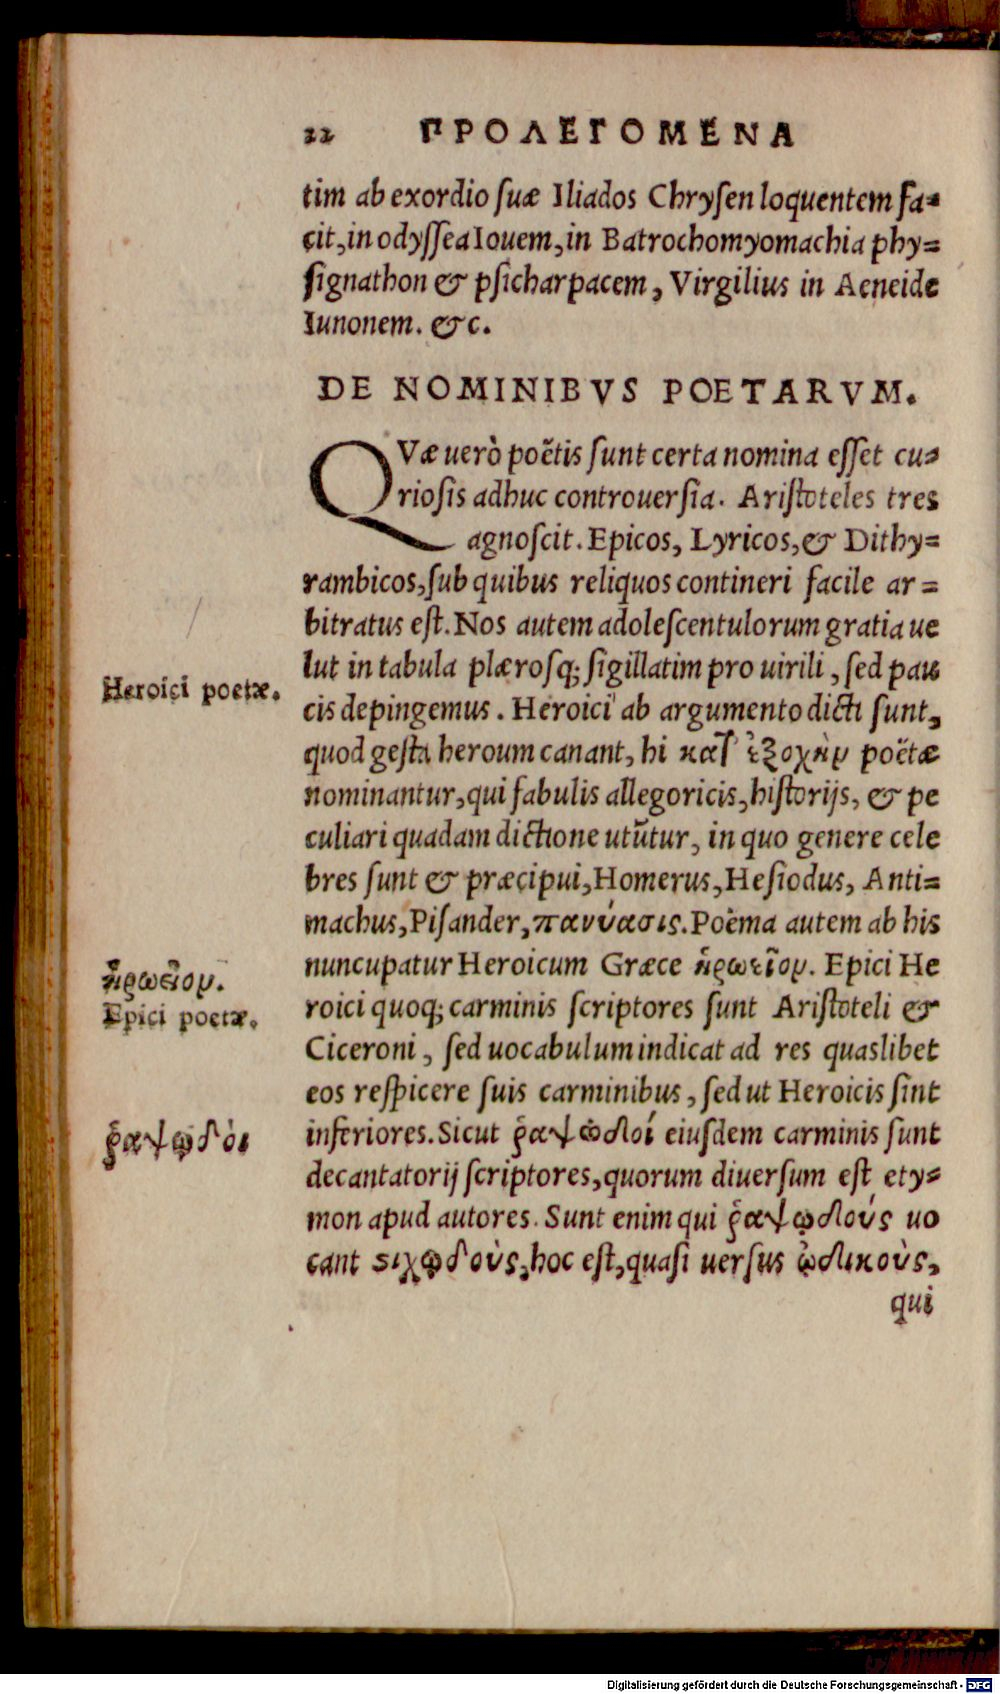 22 ΠΡΟΛΕΓΟΜΕΝΑ
tim ab exordio ſuæ Iliados Chryſen loquentem fa-
cit, in odyſſea Iouem, in Batrochomyomachia phy-
ſignathon & pſicharpacem, Virgilius in Aeneide
Iunonem. &c.
DE NOMINIBVS POETARVM.
QVæ uerò poëtis ſunt certa nomina eſſet cu-
rioſis adhuc controuerſia. Ariſtoteles tres
agnoſcit. Epicos, Lyricos, & Dithy-
rambicos, ſub quibus reliquos contineri facile ar-
bitratus eſt. Nos autem adoleſcentulorum gratia ue
lut in tabula plæroſq; ſigillatim pro uirili, ſed pau
Heroici poetæ.
cis depingemus. Heroici ab argumento dicti ſunt,
quod geſta heroum canant, hi κατ' ἐξοχὴν poëtæ
nominantur, qui fabulis allegoricis, hiſtorijs, & pe
culiari quadam dictione utũtur, in quo genere cele
bres ſunt & præcipui, Homerus, Heſiodus, Anti-
machus, Piſander, πανύασις. Poëma autem ab his
nuncupatur Heroicum Græce ἡρωεῖον. Epici He
ἡρωεῖον.
Epici poetæ.
roici quoq; carminis ſcriptores ſunt Ariſtoteli &
Ciceroni, ſed uocabulum indicat ad res quaslibet
eos reſpicere ſuis carminibus, ſed ut Heroicis ſint
inferiores. Sicut ῥαψῳδοί eiuſdem carminis ſunt
ῥαψῳδὸι
decantatorij ſcriptores, quorum diuerſum eſt ety-
mon apud autores. Sunt enim qui ῥαψῳδούς uo
cant ϛιχῳδοὺς, hoc eſt, quaſi uerſus ᾠδικοὺς,
qui
Digitalisierung gefördert durch die Deutsche Forschungsgemeinschaft - DFG